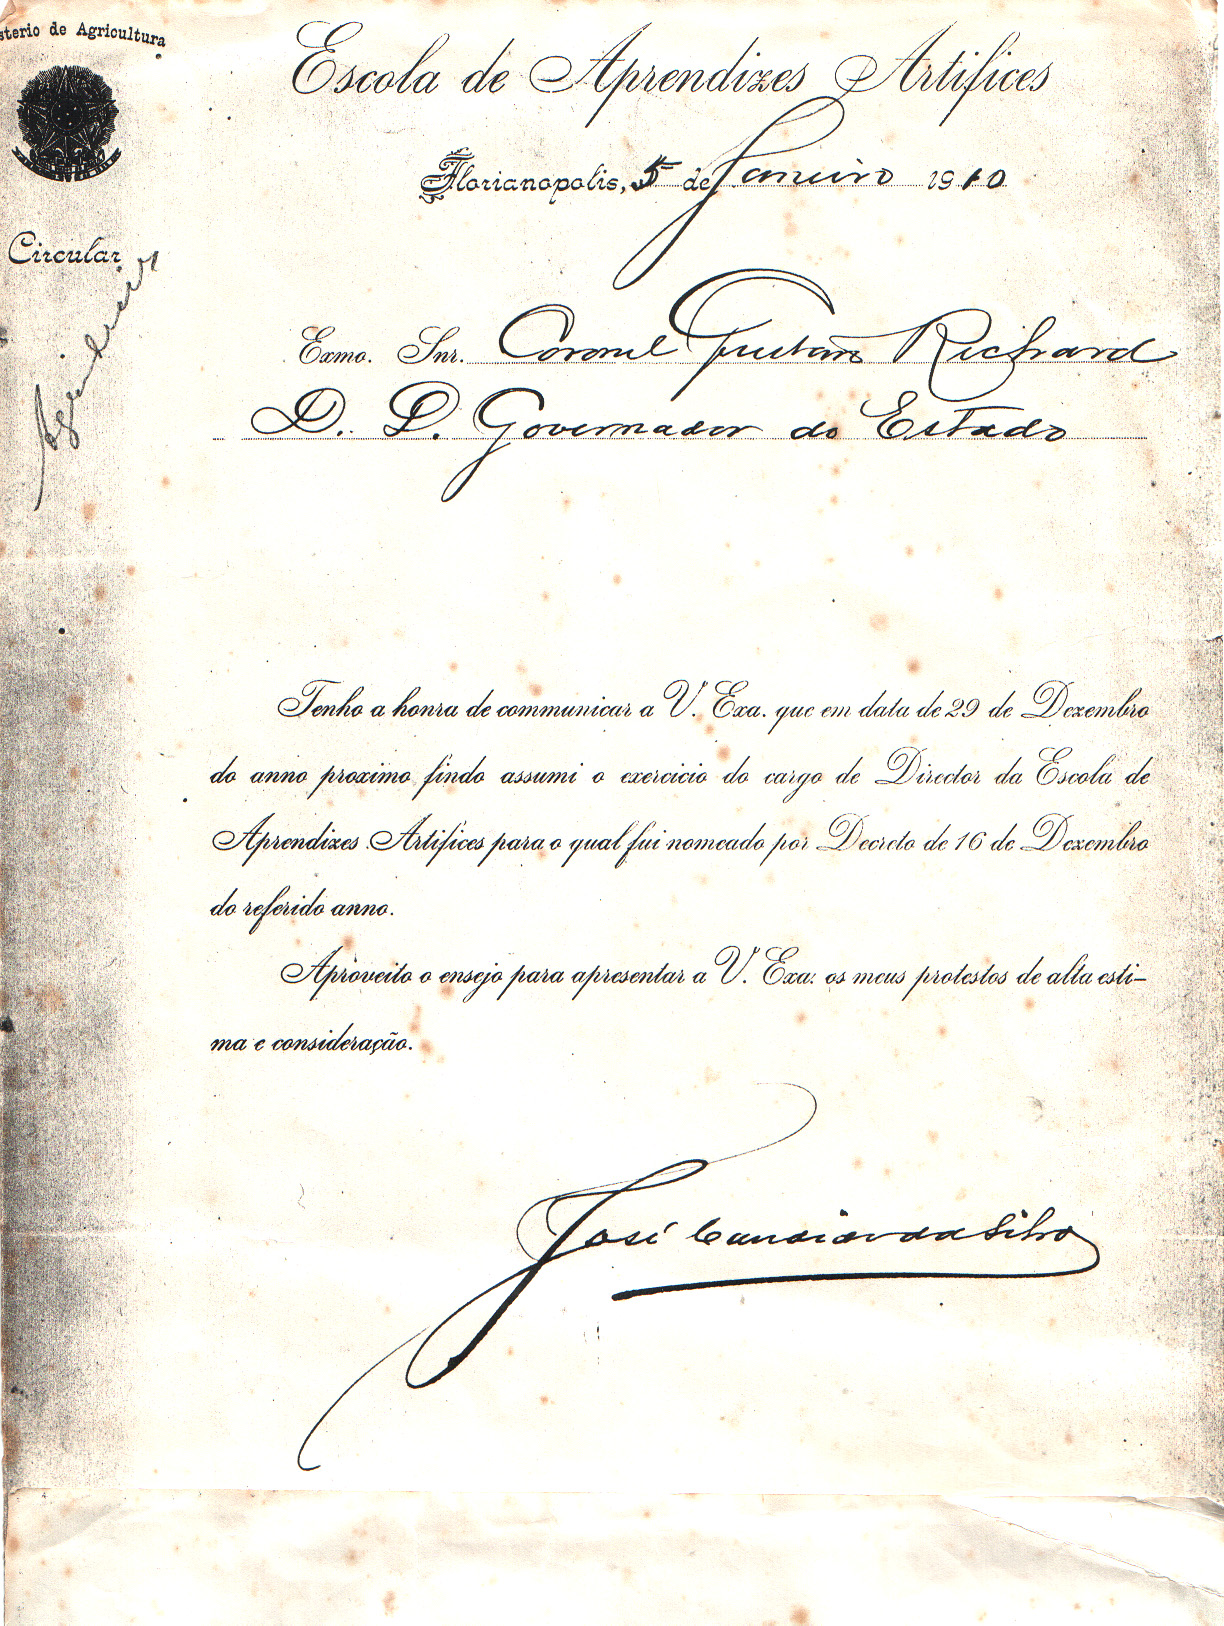 sterio de Agricultura
Escola de Aprendizes Artifices
Florianopolis, 5 de Janeiro 1910
Circular
Exmo. Snr. Coronel Gustavo Richard
D. D. Governador do Estado
Tenho a honra de communicar a V. Exa. que em data de 29 de Dezembro
do anno proximo findo assumi o exercicio do cargo de Director da Escola de
Aprendizes Artifices para o qual fui nomeado por Decreto de 16 de Dezembro
do referido anno.
Aproveito o ensejo para apresentar a V. Exa. os meus protestos de alta esti-
ma e consideração.
José Candido da Silva